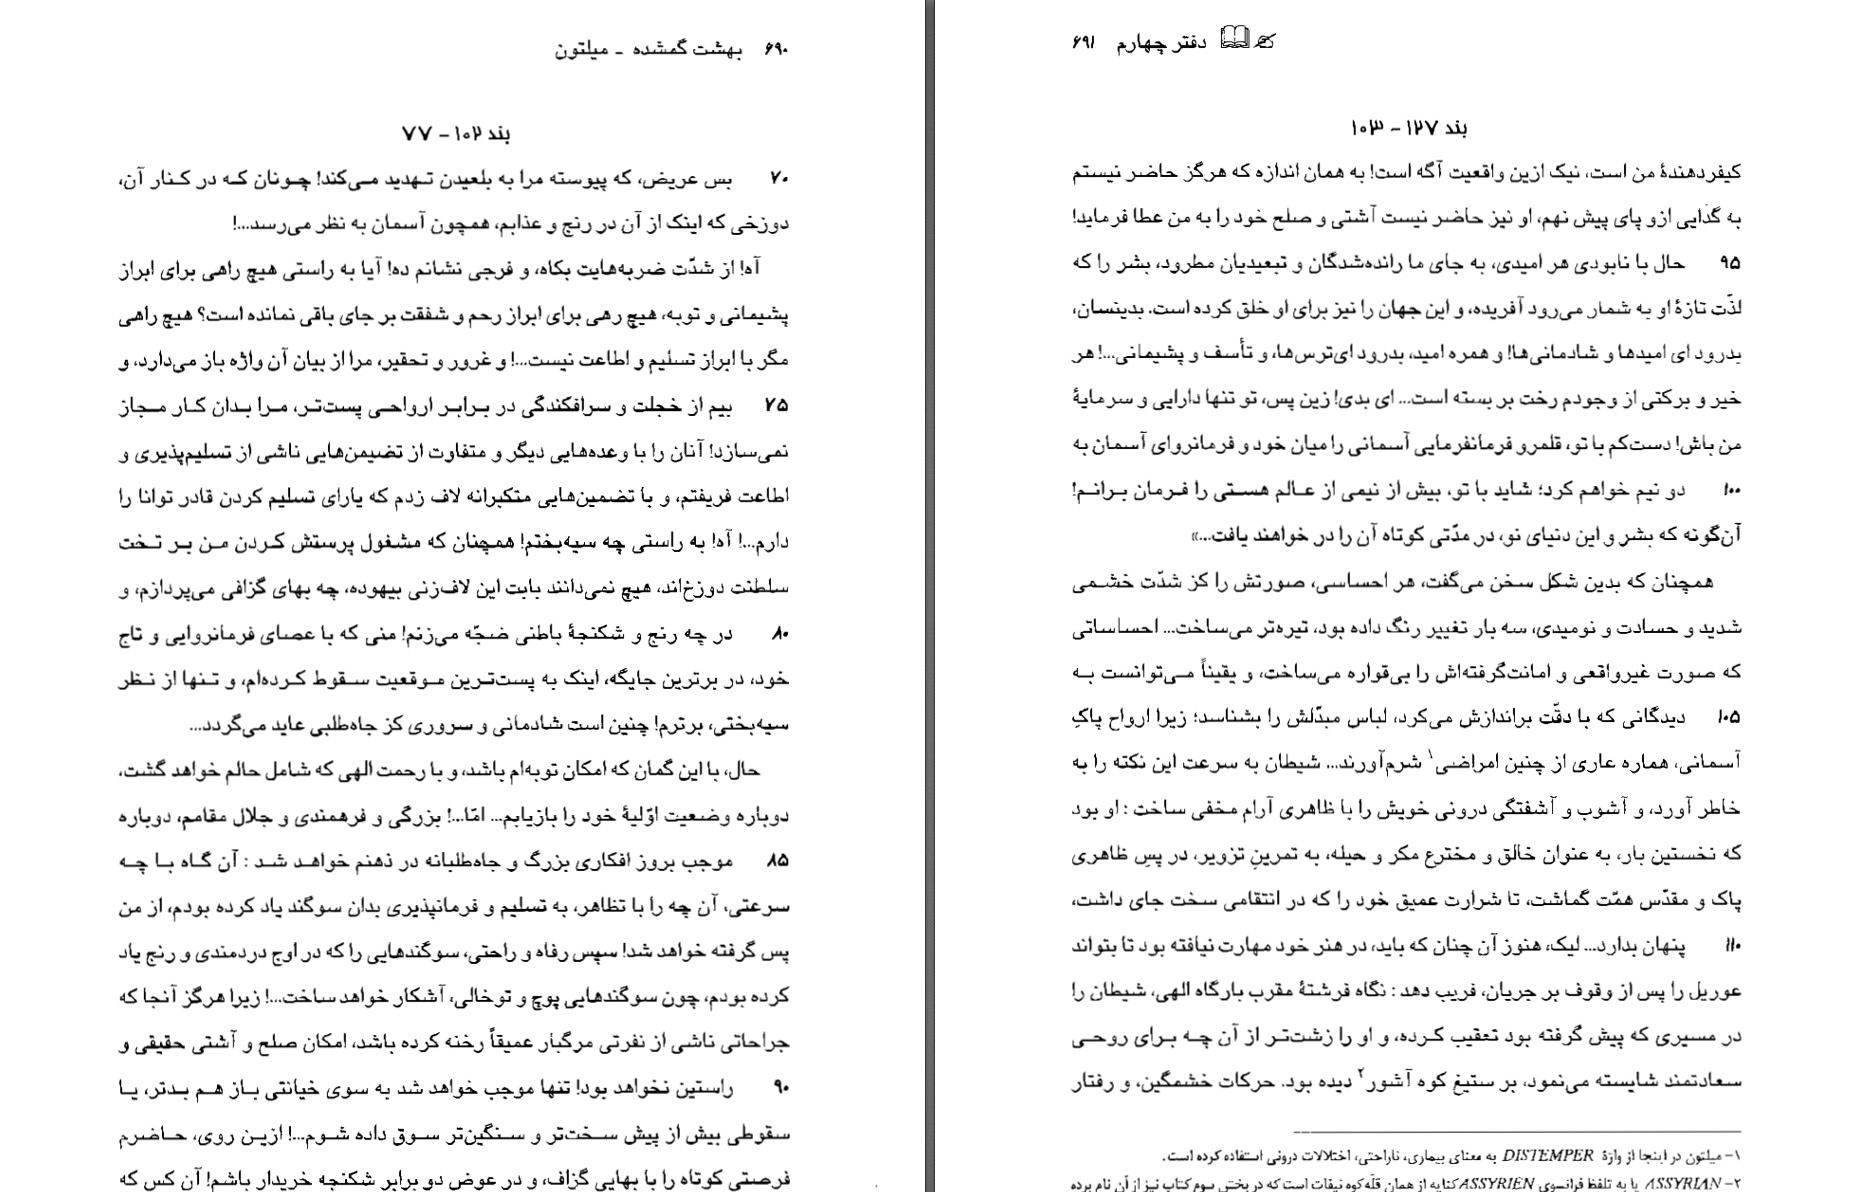 ۶۹۰ بهشت گمشده ـ میلتون
بند ۱۰۲ – ۷۷
۷۰ بس عریض، که پیوسته مرا به بلعیدن تهدید می‌کند! چونان که در کنار آن،
دوزخی که اینک از آن در رنج و عذابم، همچون آسمان به نظر می‌رسد...!
آه! از شدّت ضربه‌هایت بکاه، و فرجی نشانم ده! آیا به راستی هیچ راهی برای ابراز
پشیمانی و توبه، هیچ رهی برای ابراز رحم و شفقت بر جای باقی نمانده است؟ هیچ راهی
مگر با ابراز تسلیم و اطاعت نیست...! و غرور و تحقیر، مرا از بیان آن واژه باز می‌دارد، و
۷۵ بیم از خجلت و سرافکندگی در برابر ارواحی پست‌تر، مرا بدان کار مجاز
نمی‌سازد! آنان را با وعده‌هایی دیگر و متفاوت از تضیمن‌هایی ناشی از تسلیم‌پذیری و
اطاعت فریفتم، و با تضمین‌هایی متکبرانه لاف زدم که یارای تسلیم کردن قادر توانا را
دارم...! آه! به راستی چه سیه‌بختم! همچنان که مشغول پرستش کردن من بر تخت
سلطنت دوزخ‌اند، هیچ نمی‌دانند بابت این لاف‌زنی بیهوده، چه بهای گزافی می‌پردازم، و
۸۰ در چه رنج و شکنجهٔ باطنی ضجّه می‌زنم! منی که با عصای فرمانروایی و تاج
خود، در برترین جایگه، اینک به پست‌ترین موقعیت سقوط کرده‌ام، و تنها از نظر
سیه‌بختی، برترم! چنین است شادمانی و سروری کز جاه‌طلبی عاید می‌گردد...
حال، با این گمان که امکان توبه‌ام باشد، و با رحمت الهی که شامل حالم خواهد گشت،
دوباره وضعیت اوّلیهٔ خود را بازیابم... امّا...! بزرگی و فرهمندی و جلال مقامم، دوباره
۸۵ موجب بروز افکاری بزرگ و جاه‌طلبانه در ذهنم خواهد شد : آن گاه با چه
سرعتی، آن چه را با تظاهر، به تسلیم و فرمانپذیری بدان سوگند یاد کرده بودم، از من
پس گرفته خواهد شد! سپس رفاه و راحتی، سوگندهایی را که در اوج دردمندی و رنج یاد
کرده بودم، چون سوگندهایی پوچ و توخالی، آشکار خواهد ساخت...! زیرا هرگز آنجا که
جراحاتی ناشی از نفرتی مرگبار عمیقاً رخنه کرده باشد، امکان صلح و آشتی حقیقی و
۹۰ راستین نخواهد بود! تنها موجب خواهد شد به سوی خیانتی باز هم بدتر، یا
سقوطی بیش از پیش سخت‌تر و سنگین‌تر سوق داده شوم...! ازین روی، حاضرم
فرصتی کوتاه را با بهایی گزاف، و در عوض دو برابر شکنجه خریدار باشم! آن کس که
دفتر چهارم ۶۹۱
بند ۱۲۷ – ۱۰۳
کیفردهندهٔ من است، نیک ازین واقعیت آگه است! به همان اندازه که هرگز حاضر نیستم
به گدایی ازو پای پیش نهم، او نیز حاضر نیست آشتی و صلح خود را به من عطا فرماید!
۹۵ حال با نابودی هر امیدی، به جای ما رانده‌شدگان و تبعیدیان مطرود، بشر را که
لذّت تازهٔ او به شمار می‌رود آفریده، و این جهان را نیز برای او خلق کرده است. بدینسان،
بدرود ای امیدها و شادمانی‌ها! و همره امید، بدرود ای‌ترس‌ها، و تأسف و پشیمانی...! هر
خیر و برکتی از وجودم رخت بر بسته است... ای بدی! زین پس، تو تنها دارایی و سرمایهٔ
من باش! دست‌کم با تو، قلمرو فرمانفرمایی آسمانی را میان خود و فرمانروای آسمان به
۱۰۰ دو نیم خواهم کرد؛ شاید با تو، بیش از نیمی از عالم هستی را فرمان برانم!
آن‌گونه که بشر و این دنیای نو، در مدّتی کوتاه آن را در خواهند یافت...»
همچنان که بدین شکل سخن می‌گفت، هر احساسی، صورتش را کز شدّت خشمی
شدید و حسادت و نومیدی، سه بار تغییر رنگ داده بود، تیره‌تر می‌ساخت... احساساتی
که صورت غیرواقعی و امانت‌گرفته‌اش را بی‌قواره می‌ساخت، و یقیناً می‌توانست به
۱۰۵ دیدگانی که با دقّت براندازش می‌کرد، لباس مبدّلش را بشناسد؛ زیرا ارواح پاکِ
آسمانی، هماره عاری از چنین امراضی۱ شرم‌آورند... شیطان به سرعت این نکته را به
خاطر آورد، و آشوب و آشفتگی درونی خویش را با ظاهری آرام مخفی ساخت : او بود
که نخستین بار، به عنوان خالق و مخترع مکر و حیله، به تمرینِ تزویر، در پسِ ظاهری
پاک و مقدّس همّت گماشت، تا شرارت عمیق خود را که در انتقامی سخت جای داشت،
۱۱۰ پنهان بدارد... لیک، هنوز آن چنان که باید، در هنر خود مهارت نیافته بود تا بتواند
عوریل را پس از وقوف بر جریان، فریب دهد : نگاه فرشتهٔ مقرب بارگاه الهی، شیطان را
در مسیری که پیش گرفته بود تعقیب کرده، و او را زشت‌تر از آن چه برای روحی
سعادتمند شایسته می‌نمود، بر ستیغ کوه آشور۲ دیده بود. حرکات خشمگین، و رفتار
۱– میلتون در اینجا از واژهٔ DISTEMPER به معنای بیماری، ناراحتی، اختلالات درونی استفاده کرده است.
۲– ASSYRIAN یا به تلفظ فرانسوی ASSYRIEN کنایه از همان قلّه کوه نیفات است که در بخش سوم کتاب نیز از آن نام برده